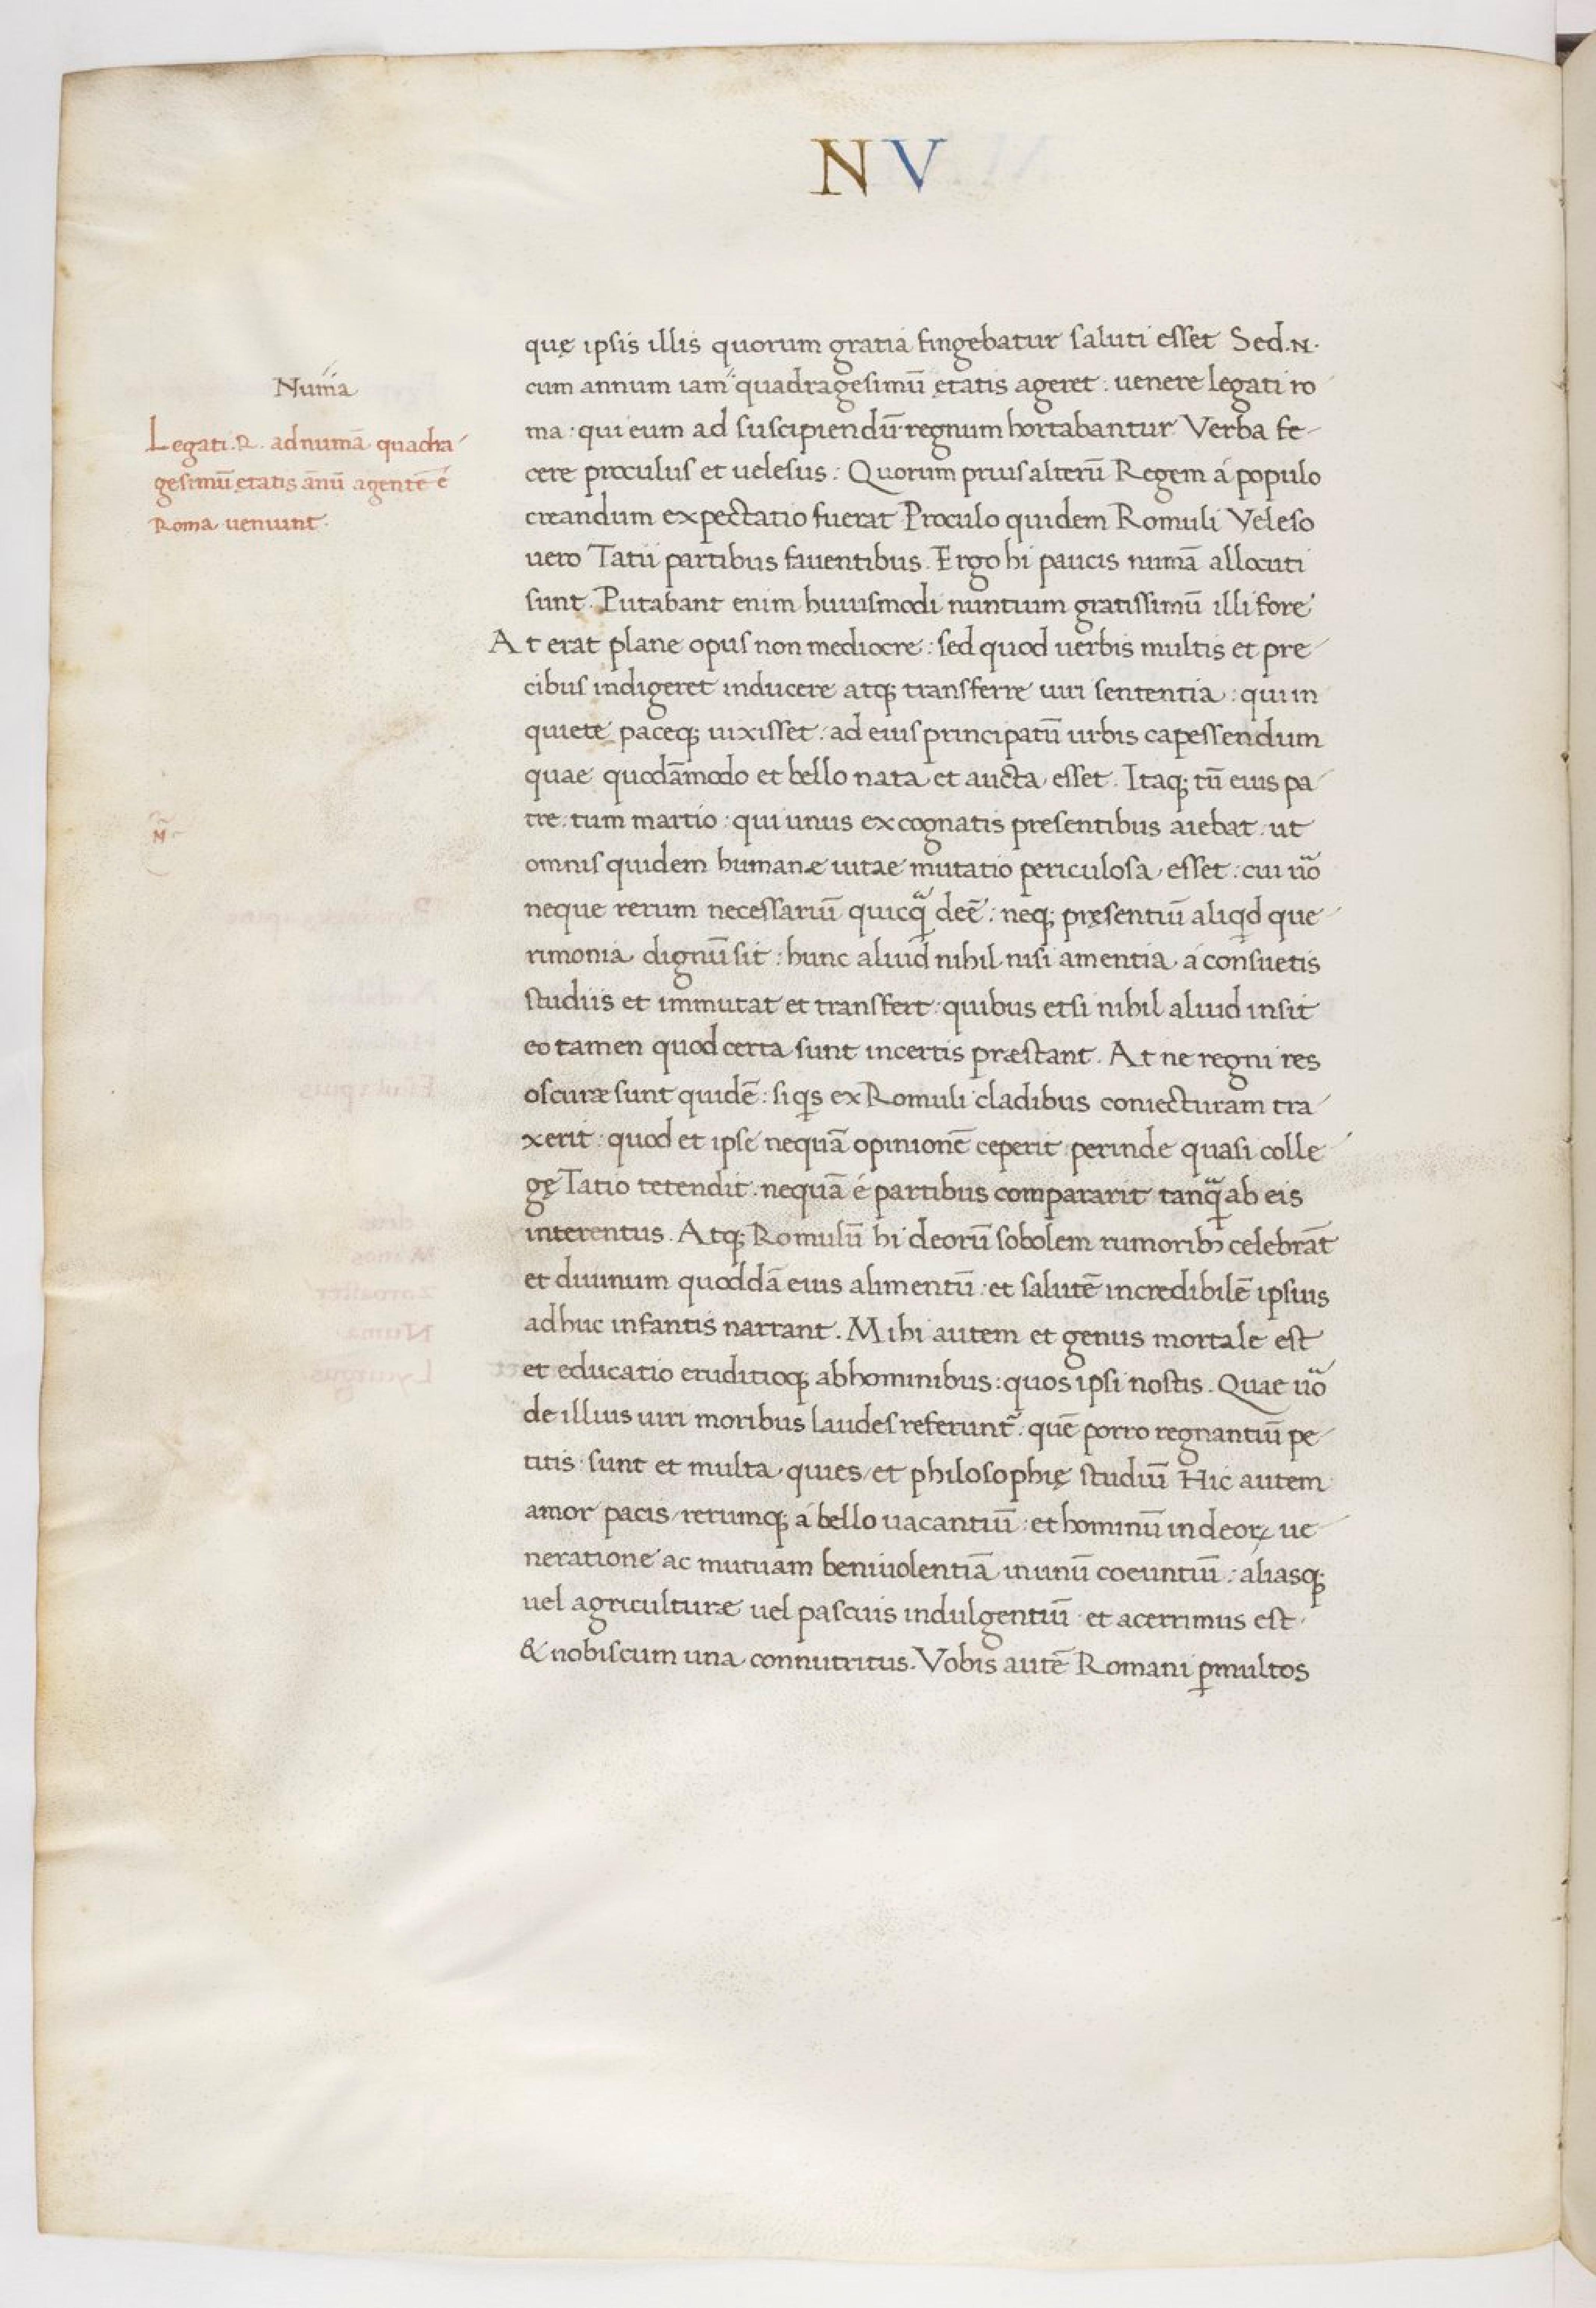 N V
quę ipsis illis quorum gratia fingebatur saluti esset Sed .N.
Numa
cum annum iam quadragesimū ętatis ageret : uenere legati ro
Legati .R. ad numā quadra
gesimū ętatis annū agentē é
Roma ueniunt.
ma : qui eum ad suscipiendū regnum hortabantur Verba fe-
cere proculus et uelesus : Quorum prius alterū Regem á populo
creandum expectatio fuerat Proculo quidem Romuli Veleso
uero Tatii partibus fauentibus . Ergo hi paucis numā allocuti
sunt . Putabant enim huiusmodi nuntium gratissimū illi fore
At erat plane opus non mediocre : sed quod uerbis multis et pre
cibus indigeret inducere atq; transferre uiri sententia : qui in
quiete paceq; uixisset : ad eius principatū urbis capessendum
quae quodāmodo et bello nata et aucta esset . Itaq; tū eius pa
tre : tum martio : qui unus ex cognatis presentibus aiebat : ut
omnis quidem humanæ uitae mutatio periculosa esset : cui uo̅
neque rerum necessariū quicq̄ deē : neq; pręsentiū aliqd que
rimonia dignū sit : hunc aliud nihil nisi amentia á consuetis
studiis et immutat et transfert : quibus etsi nihil aliud insit
eo tamen quod certa sunt incertis præstant . At ne regni res
oscuræ sunt quidē : si qs ex Romuli cladibus coniecturam tra
xerit : quod et ipse nequā opinionē ceperit perinde quasi colle
gę Tatio tetendit . nequā é partibus compararit tanq̄ ab eis
interentus . Atq; Romulū hi deorū sobolem rumorib; celebrāt
et diuinum quoddā eius alimentū : et salutē incredibilē ipsius
adhuc infantis narrant . Mihi autem et genus mortale est
et educatio eruditioq; ab hominibus : quos ipsi nostis . Quae uo̅
de illius uiri moribus laudes referunt : quē porro regnantiū pe
titis : sunt et multa quies et philosophię studiū Hic autem
amor pacis rerumq; á bello uacantiū : et hominū in deoꝝ ue
neratione ac mutuam beniuolentiā in unū coeuntiū : aliasq;
uel agriculturæ uel pascuis indulgentiū et acerrimus est
& nobiscum una connutritus . Vobis autē Romani ꝑmultos